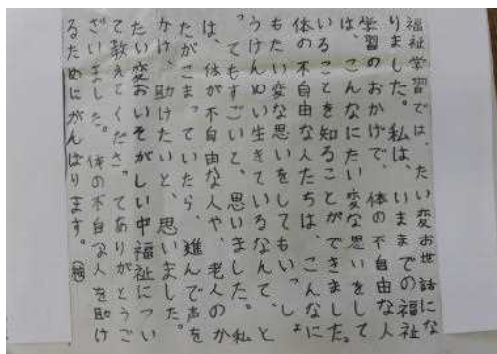 福祉学習では、たい変お世話にな
りました。私は、いままでの福祉
学習のおかげで、体の不自由な人
は、こんなにたい変な思いをして
いることを知ることができました。
体の不自由な人たちは、こんなに
もたい変な思いをしてもいっしょ
うけんめい生きているなんて、と
ってもすごいと、思いました。私
は、体が不自由な人や、老人のか
たがこまっていたら、進んで声を
かけ、助けたいと、思いました。
たい変おいそがしい中福祉につい
て教えてくださってありがとうご
ざいました。体の不自な人を助け
るためにがんばります。